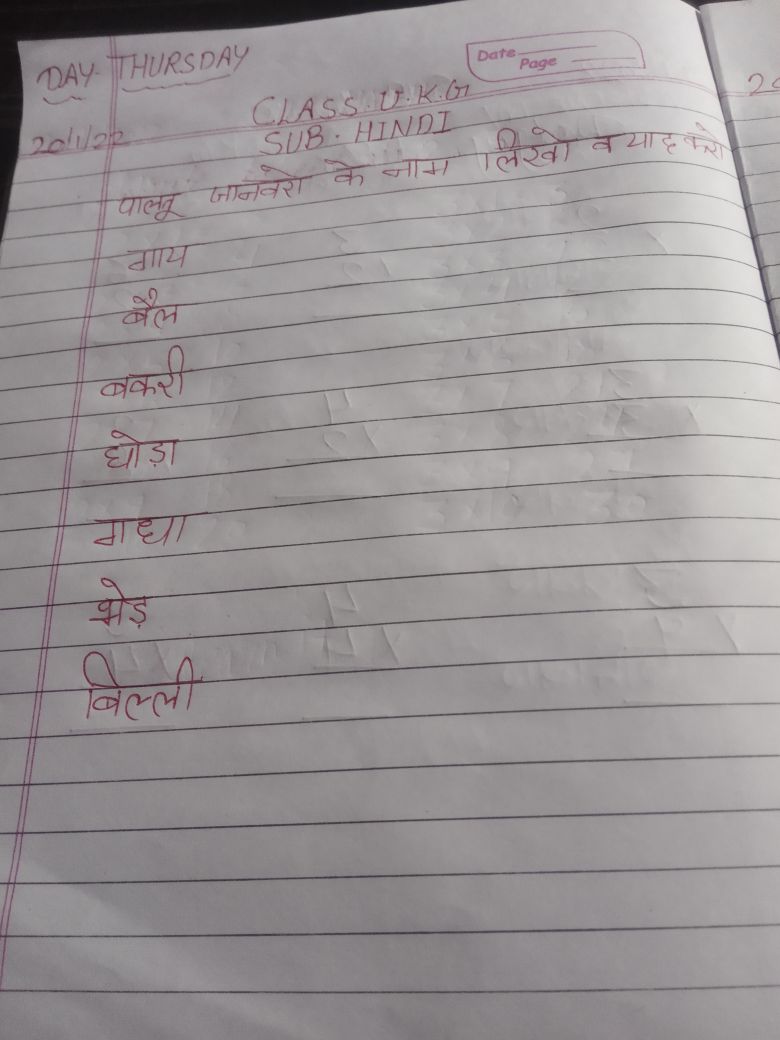 DAY. THURSDAY
Date
Page
CLASS. U.K.G
20/1/22
SUB. HINDI
पालतू जानवरो के नाम लिखो व याद करो
गाय
बैल
बकरी
घोड़ा
गधा
भेड़
बिल्ली